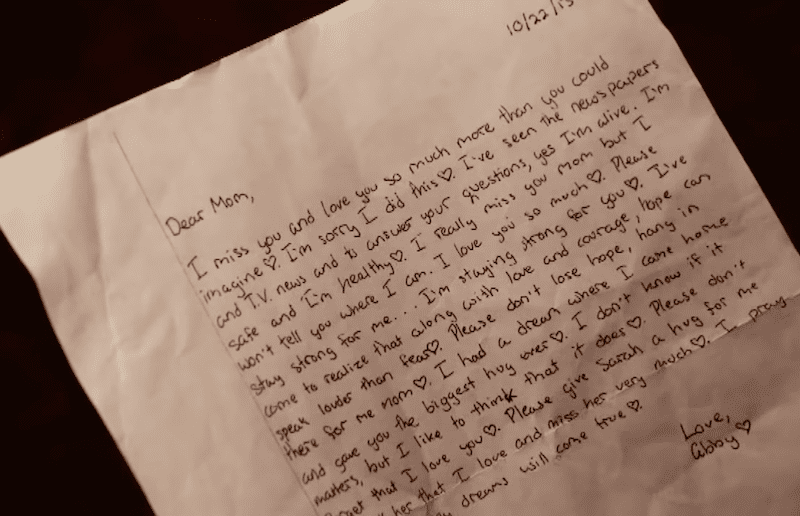 10/22/13
Dear Mom,
I miss you and love you so much more than you could
imagine♡. I'm sorry I did this♡. I've seen the newspapers
and T.V. news and to answer your questions, yes I'm alive. I'm
safe and I'm healthy♡. I really miss you mom but I
won't tell you where I am. I love you so much♡. Please
stay strong for me... I'm staying strong for you♡. I've
come to realize that along with love and courage, hope can
speak louder than fear♡. Please don't lose hope, hang in
there for me mom♡. I had a dream where I came home
and gave you the biggest hug ever♡. I don't know if it
matters, but I like to think that it does♡. Please don't
that I love you♡. Please give Sarah a hug for me
her that I love and miss her very much♡. I pray
dreams will come true♡.
Love,
Abby♡